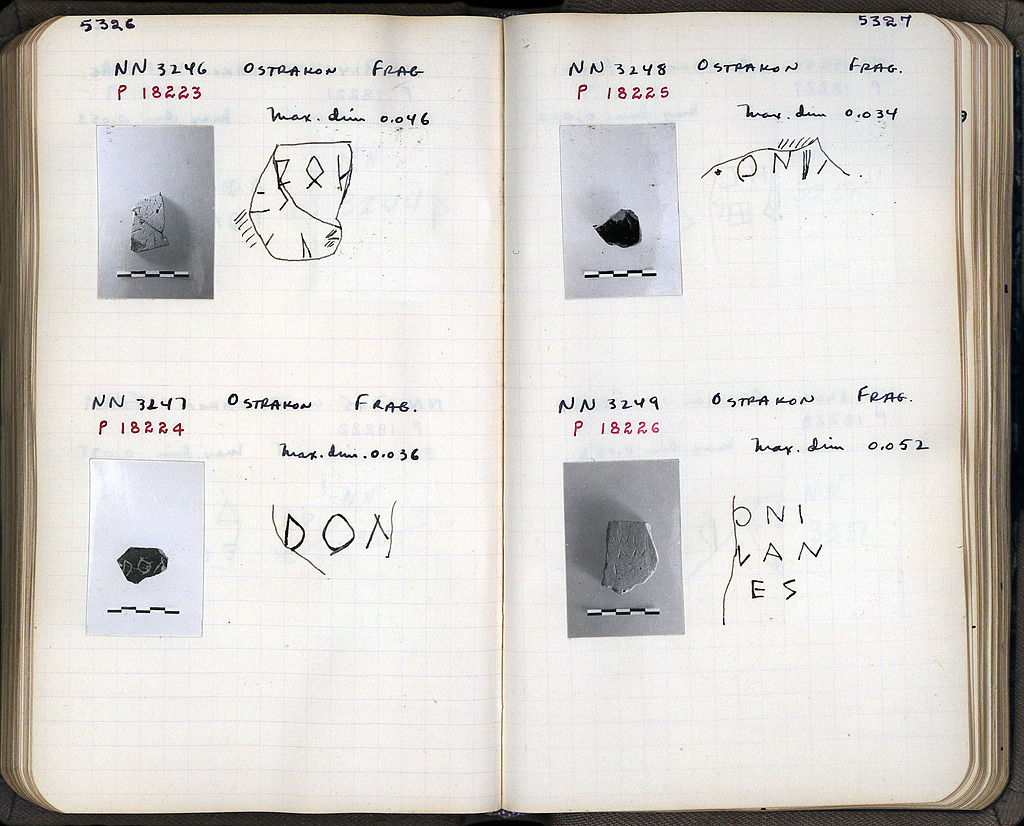 5326
NN 3246 OSTRAKON FRAG
P 18223
Max. dim 0.046
NN 3247 OSTRAKON FRAG.
P 18224
Max. dim. 0.036
DON
5327
NN 3248 OSTRAKON FRAG.
P 18225
Max. dim 0.034
ONI
NN 3249 OSTRAKON FRAG.
P 18226
Max. dim 0.052
ONI
AN
ES